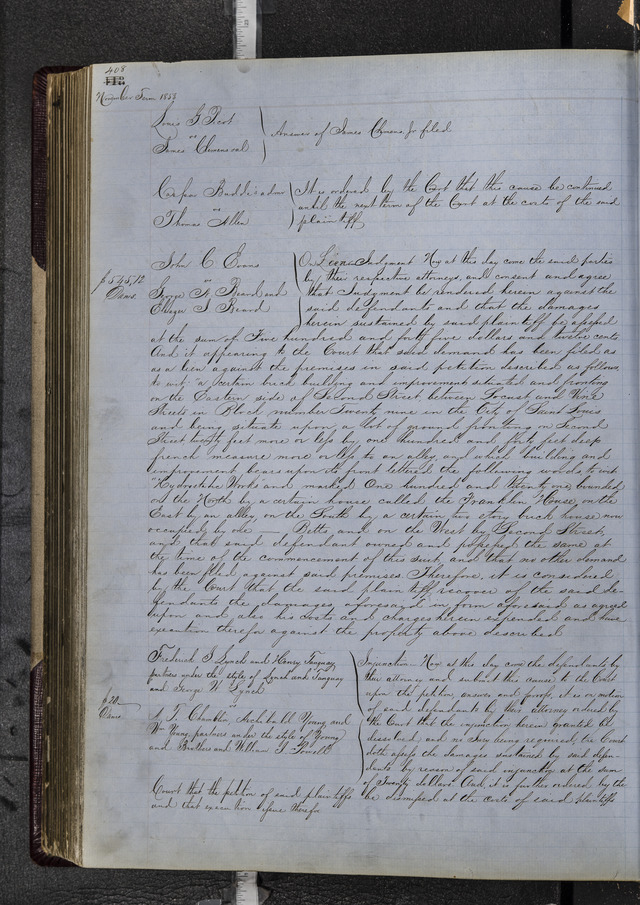 408
November Term 1853
Louis G Picot
vs
James Clemens et al
Answer of James Clemens Jr filed
Casper Budde's admr
vs
Thomas Allen
It is ordered by the Court that this cause be continued
until the next term of the Court at the costs of the said
plaintiff
John C Evans
vs
George W Beard and
Eleazer S Beard
$545,12
Dams.
On Lien Judgment Now at this day come the said parties
by their respective attorneys, and consent and agree
that Judgment be rendered herein against the
said defendants and that the damages
herein sustained by said plaintiff be assessed
at the sum of Five hundred and forty five dollars and twelve cents
And it appearing to the Court that said demand has been filed as
as a lien against the premises in said petition described as follows
to wit: a certain brick building and improvement situated and fronting
on the Eastern side of Second Street between Locust and Vine
Streets in Block number Twenty nine in the City of Saint Louis
and being situate upon a lot of ground fronting on Second
Street twenty feet more or less by one hundred and forty feet deep
french measure more or less to an alley, and which building and
improvement bears upon its front lettered the following words to wit
"Hydrostatic Works" and marked One hundred and twenty one bounded
on the North by a certain house called the Franklin House, on the
East by an alley, on the South by a certain two story brick house now
occupied by one — Betts and on the West by Second Street;
and that said defendant owned and possessed the same at
the time of the commencement of this suit, and that no other demand
has been filed against said premises. Therefore it is considered
by the Court that the said plaintiff recover of the said de-
fendants the damages aforesaid in form aforesaid as agreed
upon and also his costs and charges herein expended and have
execution therefor against the property above described
Frederick J Lynch and Henry Tanguay
partners under the style of Lynch and Tanguay
and George W Lynch
vs
A T Chamblin, Archibald Young and
Wm Young partners under the style of Young
and Brothers and William J Powell
$20.
Dams.
Injunction. Now at this day come the defendants by
their attorney and submit this cause to the Court
upon the petition, answer and proofs, it is on motion
of said defendants by their attorney ordered by
the Court that the injunction herein granted be
dissolved; and no Jury being required, the Court
doth assess the damages sustained by said defen-
dants by reason of said injunction at the sum
of Twenty dollars. And, it is further ordered by the
Court that the petition of said plaintiffs be dismissed at the costs of said plaintiffs
and that execution issue therefor